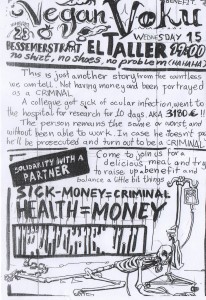 BENEFIT
Vegan Voku
WEDNESDAY 15
BESSEMERSTRAAT EL TALLER
no shirt, no shoes, no problem (HAHAHA)
This is just another story from the countless
we omit. Not having money and been portrayed
as a CRIMINAL.
A colleague got sick of ocular infection, went to
the hospital for research for 10 days. AKA 3180 € !!
The person remains the same or worst and
without been able to work. In case he doesnt pay
he'll be prosecuted and turn out to be a CRIMINAL
SOLIDARITY WITH A
PARTNER
Come to join us for a
delicious meal and try
to raise up benefit and
balance a little bit things
SICK-MONEY=CRIMINAL
HEALTH=MONEY